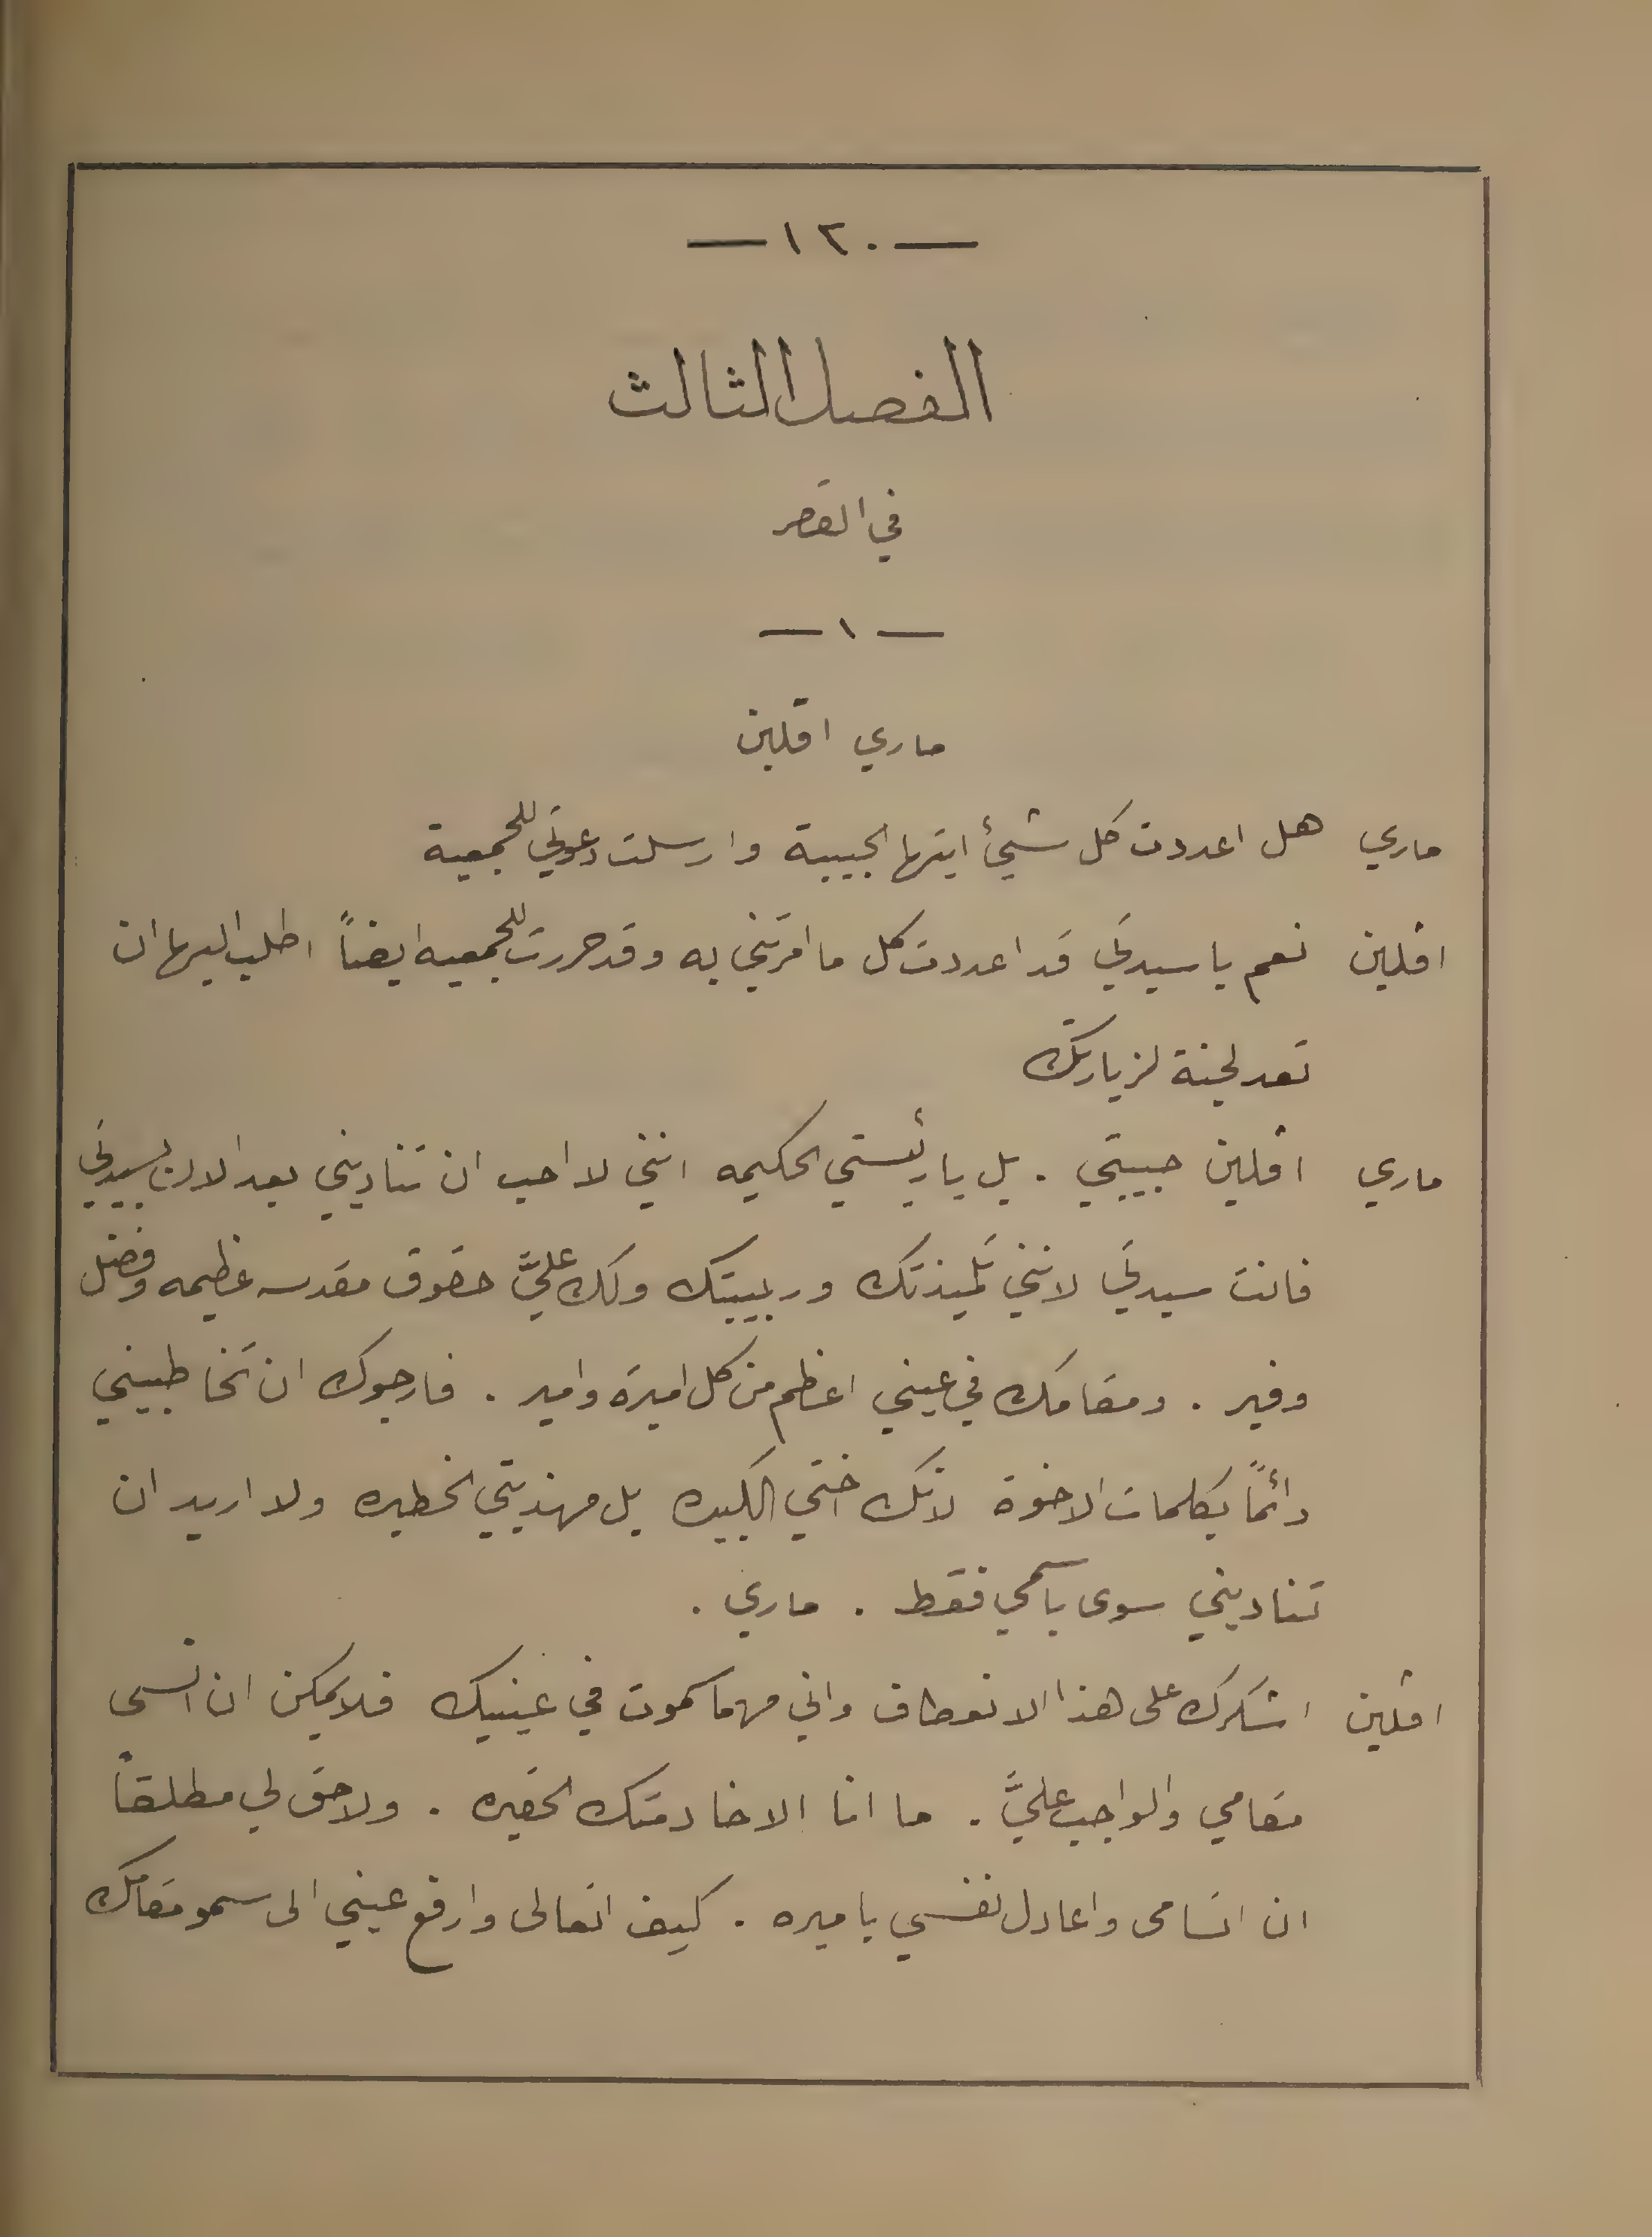 — ١٢٠ —
الفصل الثالث
في القصر
— ١ —
ماري افلين
ماري هل اعددت كل شيئ ايتها الحبيبة وارسلت دعوتي للجمعية
افلين نعم يا سيدتي قد اعددت كل ما امرتني به وقد حررت للجمعيه ايضاً اطلب اليها ان
تعد لجنة لزيارتك
ماري افلين حبيبتي . بل يا رئيستي الحكيمه انني لا احب ان تناديني بعد الان بسيدتي
فانت سيدتي لانني تلميذتك وربيبتك ولك عليَّ حقوق مقدسه عظيمه وفضل
وفير . ومقامك في عيني اعظم من كل اميرة وامير . فارجوك ان تخاطبيني
دائماً بكلمات الاخوة لانك اختي الكبيره بل مهذبتي الخطيره ولا اريد ان
تناديني سوى باسمي فقط . ماري .
افلين اشكرك على هذا الانعطاف واني مهما سموت في عينيك فلا يمكن ان انسى
مقامي والواجب عليَّ . ما انا الا خادمتك الحقيره . ولا حق لي مطلقاً
ان اتسامى واعادل نفسي باميره . كيف اتعالى وارفع عيني الى سمو مقامك